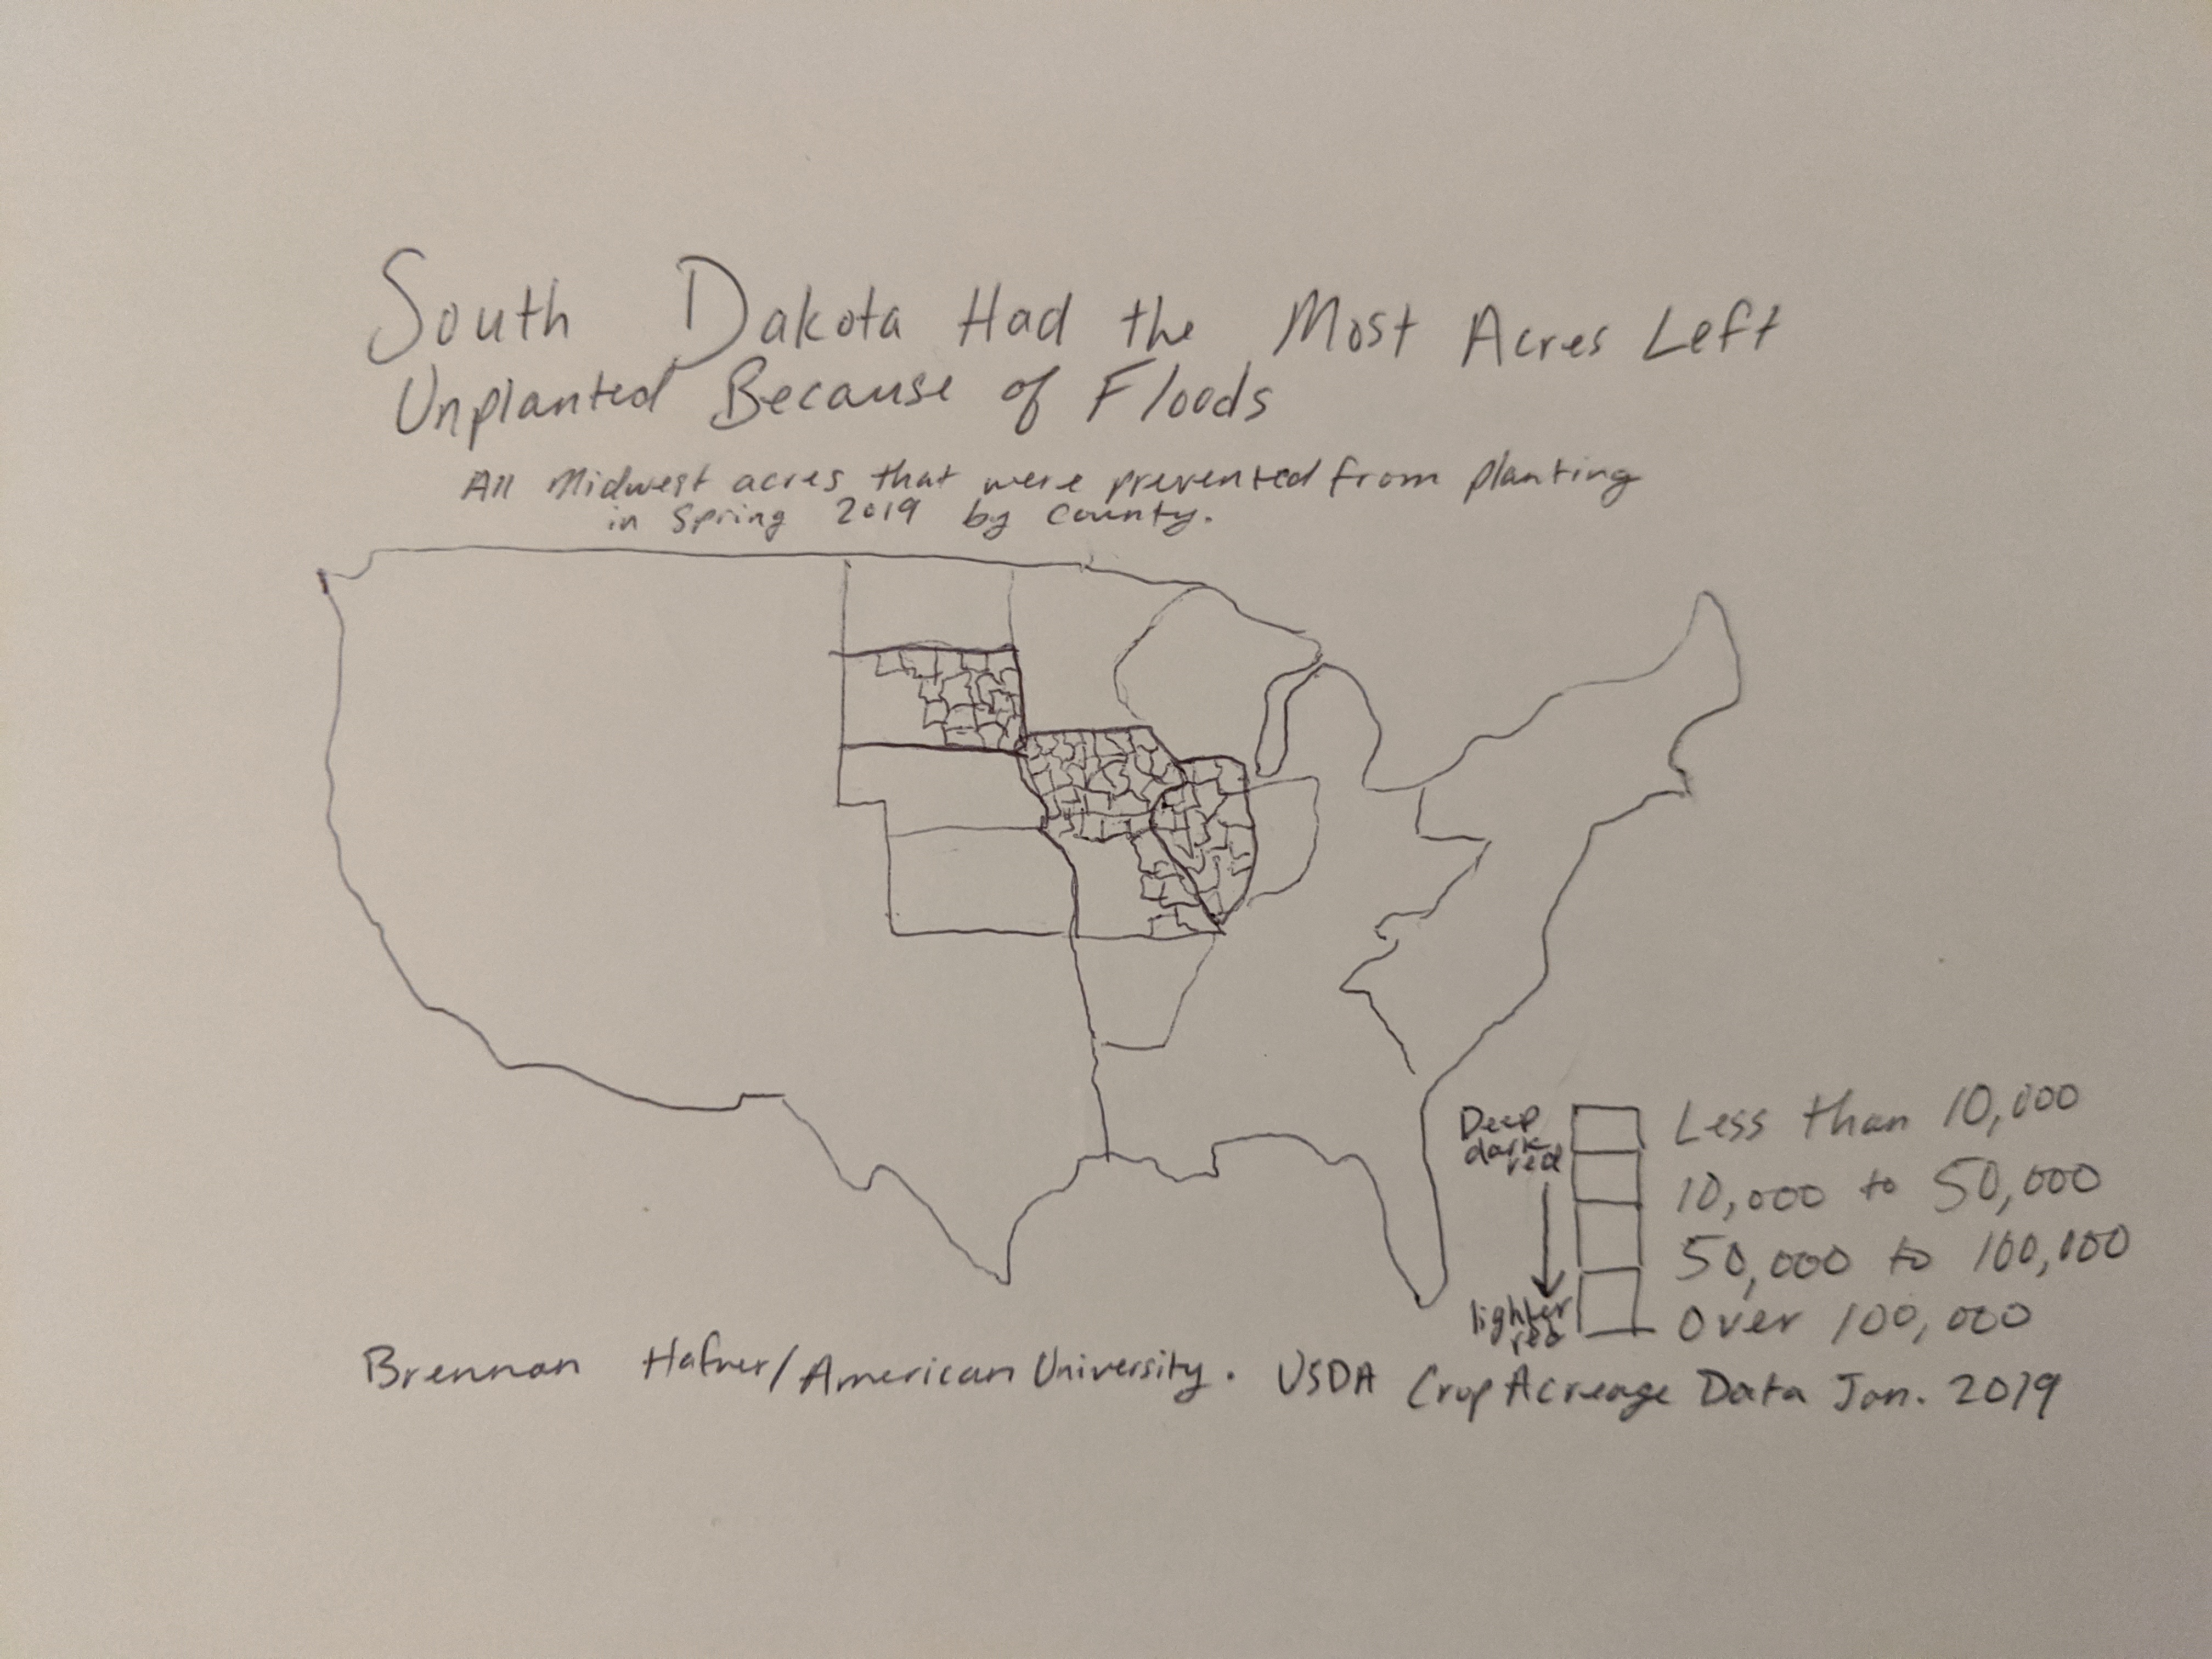 South Dakota Had the Most Acres Left
Unplanted Because of Floods
All Midwest acres that were prevented from planting
in Spring 2019 by County.
Deep
dark
red
lighter
red
Less than 10,000
10,000 to 50,000
50,000 to 100,000
Over 100,000
Brennan Hafner/American University. USDA Crop Acreage Data Jan. 2019